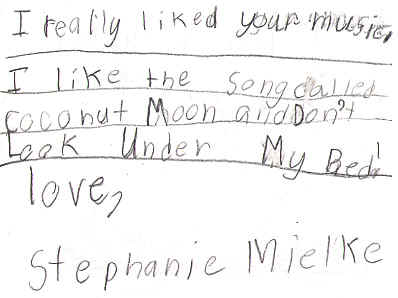 I really liked your music,
I like the song called
coconut Moon and Don't
Look Under My Bed!
love,
Stephanie Mielke